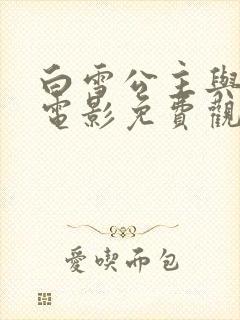 白雪公主與
電影免費觀
愛喫而包